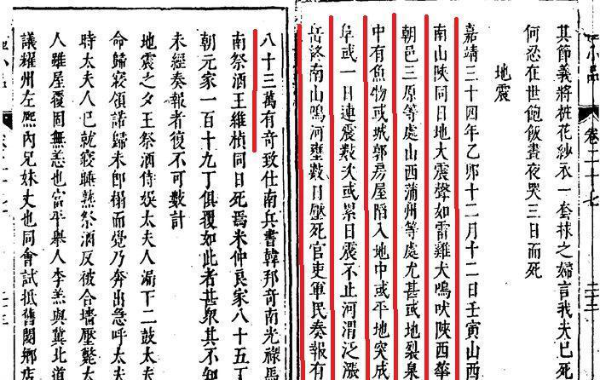 小品 卷二十七
其節義將桩花紗衣一套抹之婦言我夫已死
何忍在世飽飯晝夜哭三日而死
地震
嘉靖三十四年乙卯十二月十二日壬寅山西
南山陝同日地大震聲如雷雞犬鳴吠陝西華
朝邑三原等處山西蒲州等處尤甚或地裂泉
中有魚物或城郭房屋陷入地中或平地突成
阜或一日連震數次或累日震不止河渭泛漲
岳終南山鳴河壅數日壓死官吏軍民奏報有
八十三萬有奇致仕南兵書韓邦奇南光祿馬
南祭酒王維楨同日死焉米仲良家八十五丁
朝元家一百十九丁俱覆如此者甚眾其不知
未經奏報者復不可數計
地震之夕王祭酒侍娛太夫人漏下二鼓太夫
命歸寢領諾歸未即榻而覺乃奔出急呼太夫
時太夫人已就寢睡熟祭酒反被合墻壓斃太
人雖屋覆固無恙也富平舉人李羔與冀北道
議耀州左熈內兄妹丈也同會試抵舊閿鄉店